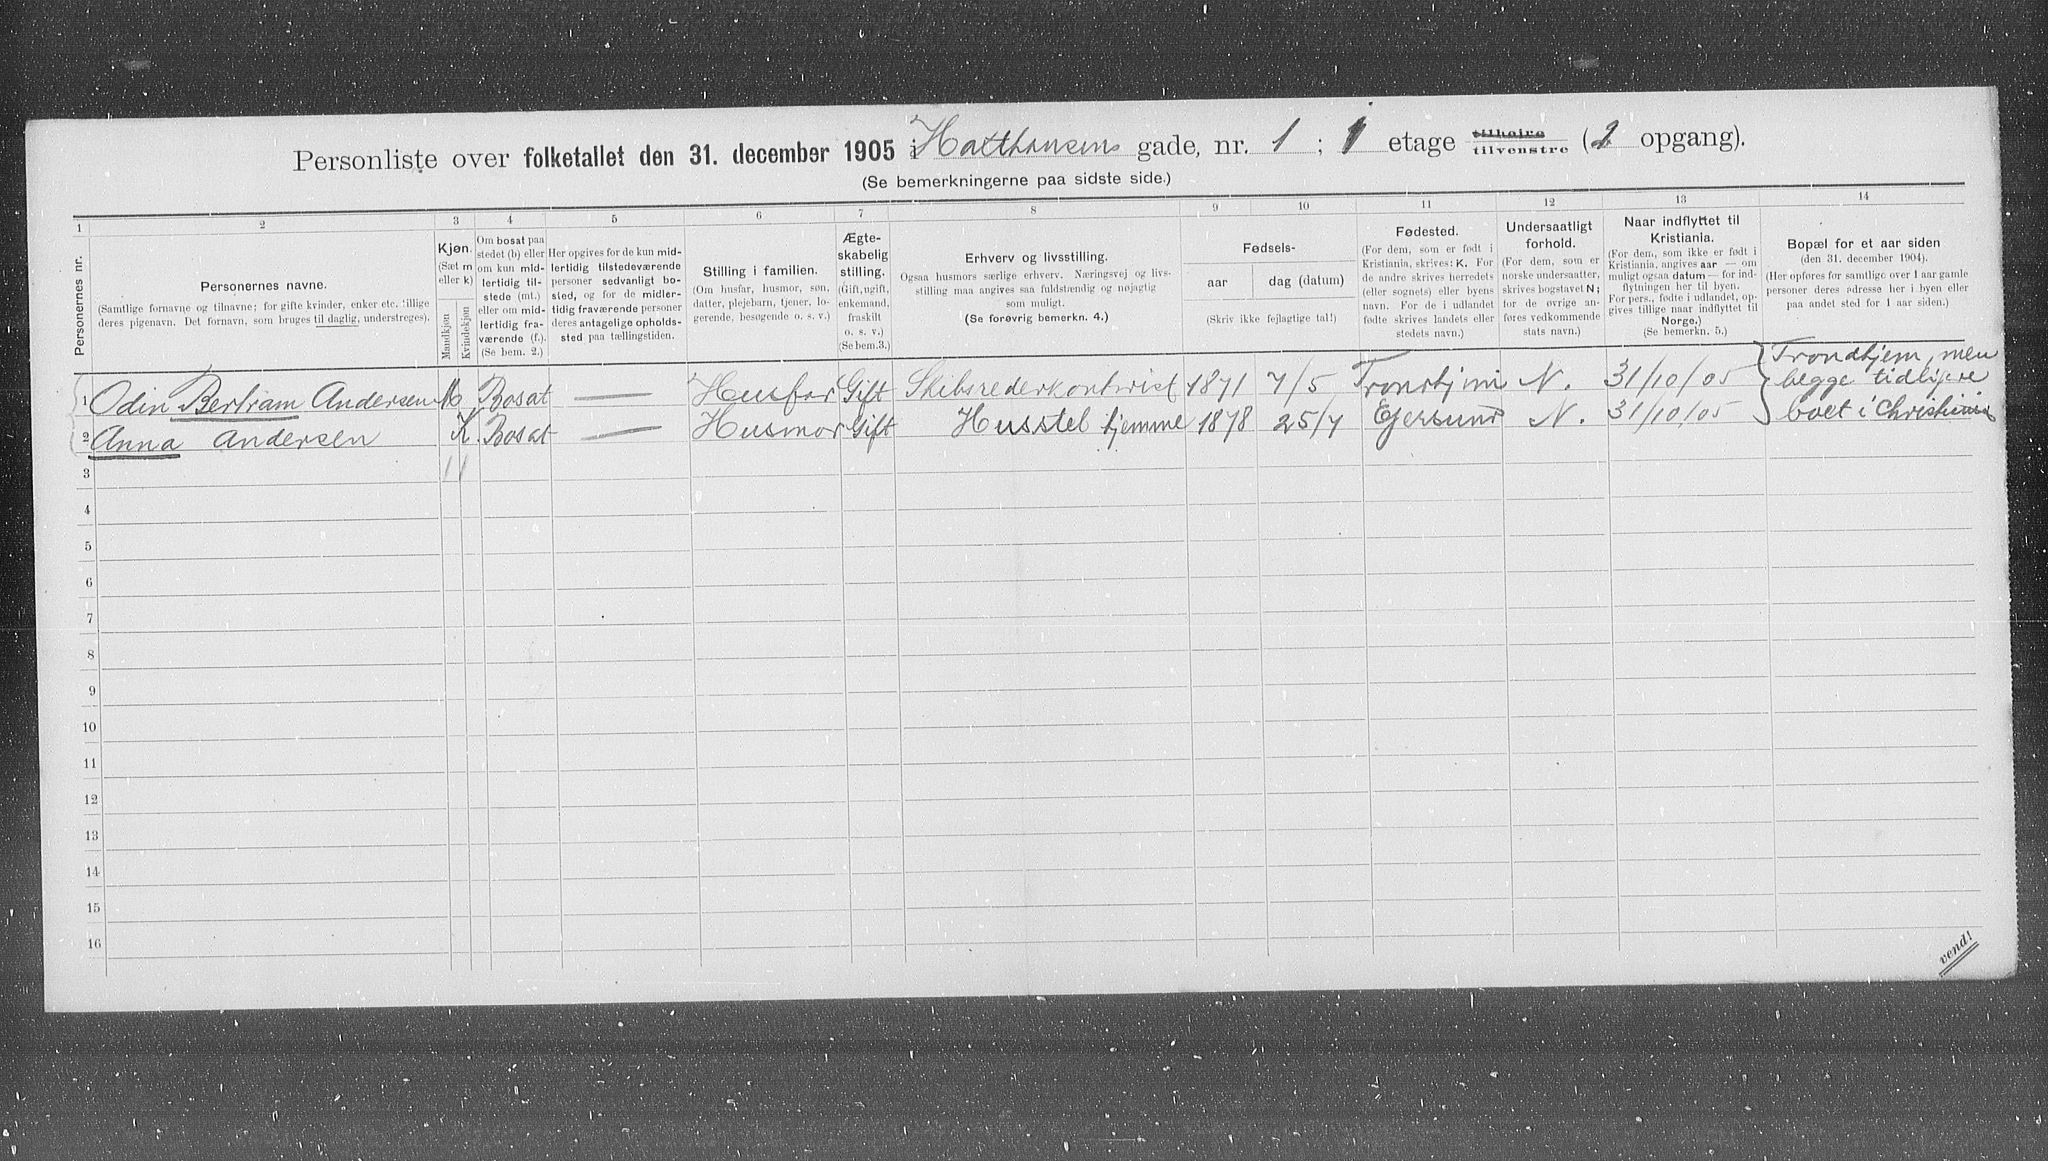 Personliste over folketallet den 31. december 1905 i Hatthausens gade, nr. 1 ; 1 etage tilhøire tilvenstre (2 opgang).
(Se bemerkningerne paa sidste side.)
1 2 3 4 5 6 7 8 9 10 11 12 13 14
Personernes nr.
Personernes navne.
(Samtlige fornavne og tilnavne; for gifte kvinder, enker etc. tillige
deres pigenavn. Det fornavn, som bruges til daglig, understreges).
Kjøn.
(Sæt m
eller k)
Mandkjøn
Kvindekjøn
Om bosat paa
stedet (b) eller
om kun mid-
lertidig til-
stede (mt.)
eller om mid-
lertidig fra-
værende (f.).
(Se bem. 2.)
Her opgives for de kun mid-
lertidig tilstedeværende
personer sedvanligt bo-
sted, og for de midler-
tidig fraværende personer
deres antagelige opholds-
sted paa tællingstiden.
Stilling i familien.
(Om husfar, husmor, søn,
datter, plejebarn, tjener, lo-
gerende, besøgende o. s. v.)
Ægte-
skabelig
stilling.
(Gift, ugift,
enkemand,
fraskilt
o. s. v.)
(Se bem.3.)
Erhverv og livsstilling.
Ogsaa husmors særlige erhverv. Næringsvej og livs-
stilling maa angives saa fuldstændig og nøjagtig
som muligt.
(Se forøvrig bemerkn. 4.)
Fødsels-
aar dag (datum)
(Skriv ikke fejlagtige tal!)
Fødested.
(For dem, som er født i
Kristiania, skrives: K. For
de andre skrives herredets
(eller sognets) eller byens
navn. For de i udlandet
fødte skrives landets eller
stedets navn.)
Undersaatligt
forhold.
(For dem, som er
norske undersaatter,
skrives bogstavet N;
for de øvrige an-
føres vedkommende
stats navn.)
Naar indflyttet til
Kristiania.
(For dem, som ikke er født i
Kristiania, angives aar — om
muligt ogsaa datum — for ind-
flytningen her til byen.
For pers., fødte i udlandet, op-
gives tillige naar indflyttet til
Norge.)
(Se bemerkn. 5.)
Bopæl for et aar siden
(den 31. december 1904).
(Her opføres for samtlige over 1 aar gamle
personer deres adresse her i byen eller
paa andet sted for 1 aar siden.)
1 Odin Bertram Andersen M Bosat — Husfar Gift Skibsrederkontorist 1871 7/5 Tronhjem N. 31/10/05 Trondhjem, men
begge tidligere
2 Anna Andersen K. Bosat — Husmor Gift Husstel hjemme 1878 25/7 Egersund N. 31/10/05 boet i Christiania
3
4
5
6
7
8
9
10
11
12
13
14
15
16
vend!